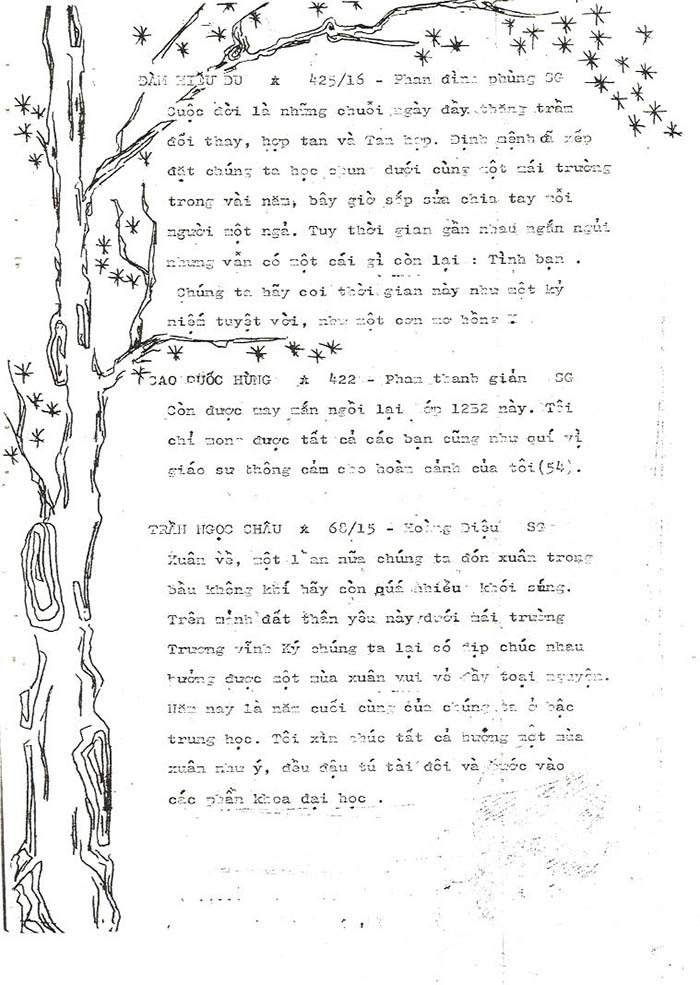 ĐÀM HIẾU DU * 425/16 - Phan đình phùng SG
Cuộc đời là những chuỗi ngày đầy thăng trầm
đổi thay, hợp tan và Tan hợp. Định mệnh đã xếp
đặt chúng ta học chung dưới cùng một mái trường
trong vài năm, bây giờ sắp sửa chia tay mỗi
người một ngả. Tuy thời gian gần nhau ngắn ngủi
nhưng vẫn có một cái gì còn lại : Tình bạn .
Chúng ta hãy coi thời gian này như một kỷ
niệm tuyệt vời, như một cơn mơ hồng
CAO QUỐC HÙNG * 422 - Phan thanh giản SG
Còn được may mắn ngồi lại lớp 12B2 này. Tôi
chỉ mong được tất cả các bạn cũng như quí vị
giáo sư thông cảm cho hoàn cảnh của tôi(54).
TRẦN NGỌC CHÂU * 68/15 - Hoàng Diệu SG
Xuân về, một lần nữa chúng ta đón xuân trong
bầu không khí hãy còn quá nhiều khói súng.
Trên mảnh đất thân yêu này,dưới mái trường
Trương vĩnh Ký chúng ta lại có dịp chúc nhau
hưởng được một mùa xuân vui vẻ đầy toại nguyện.
Năm nay là năm cuối cùng của chúng ta ở bậc
trung học. Tôi xin chúc tất cả hưởng một mùa
xuân như ý, đều đậu tú tài đôi và bước vào
các phần khoa đại học .